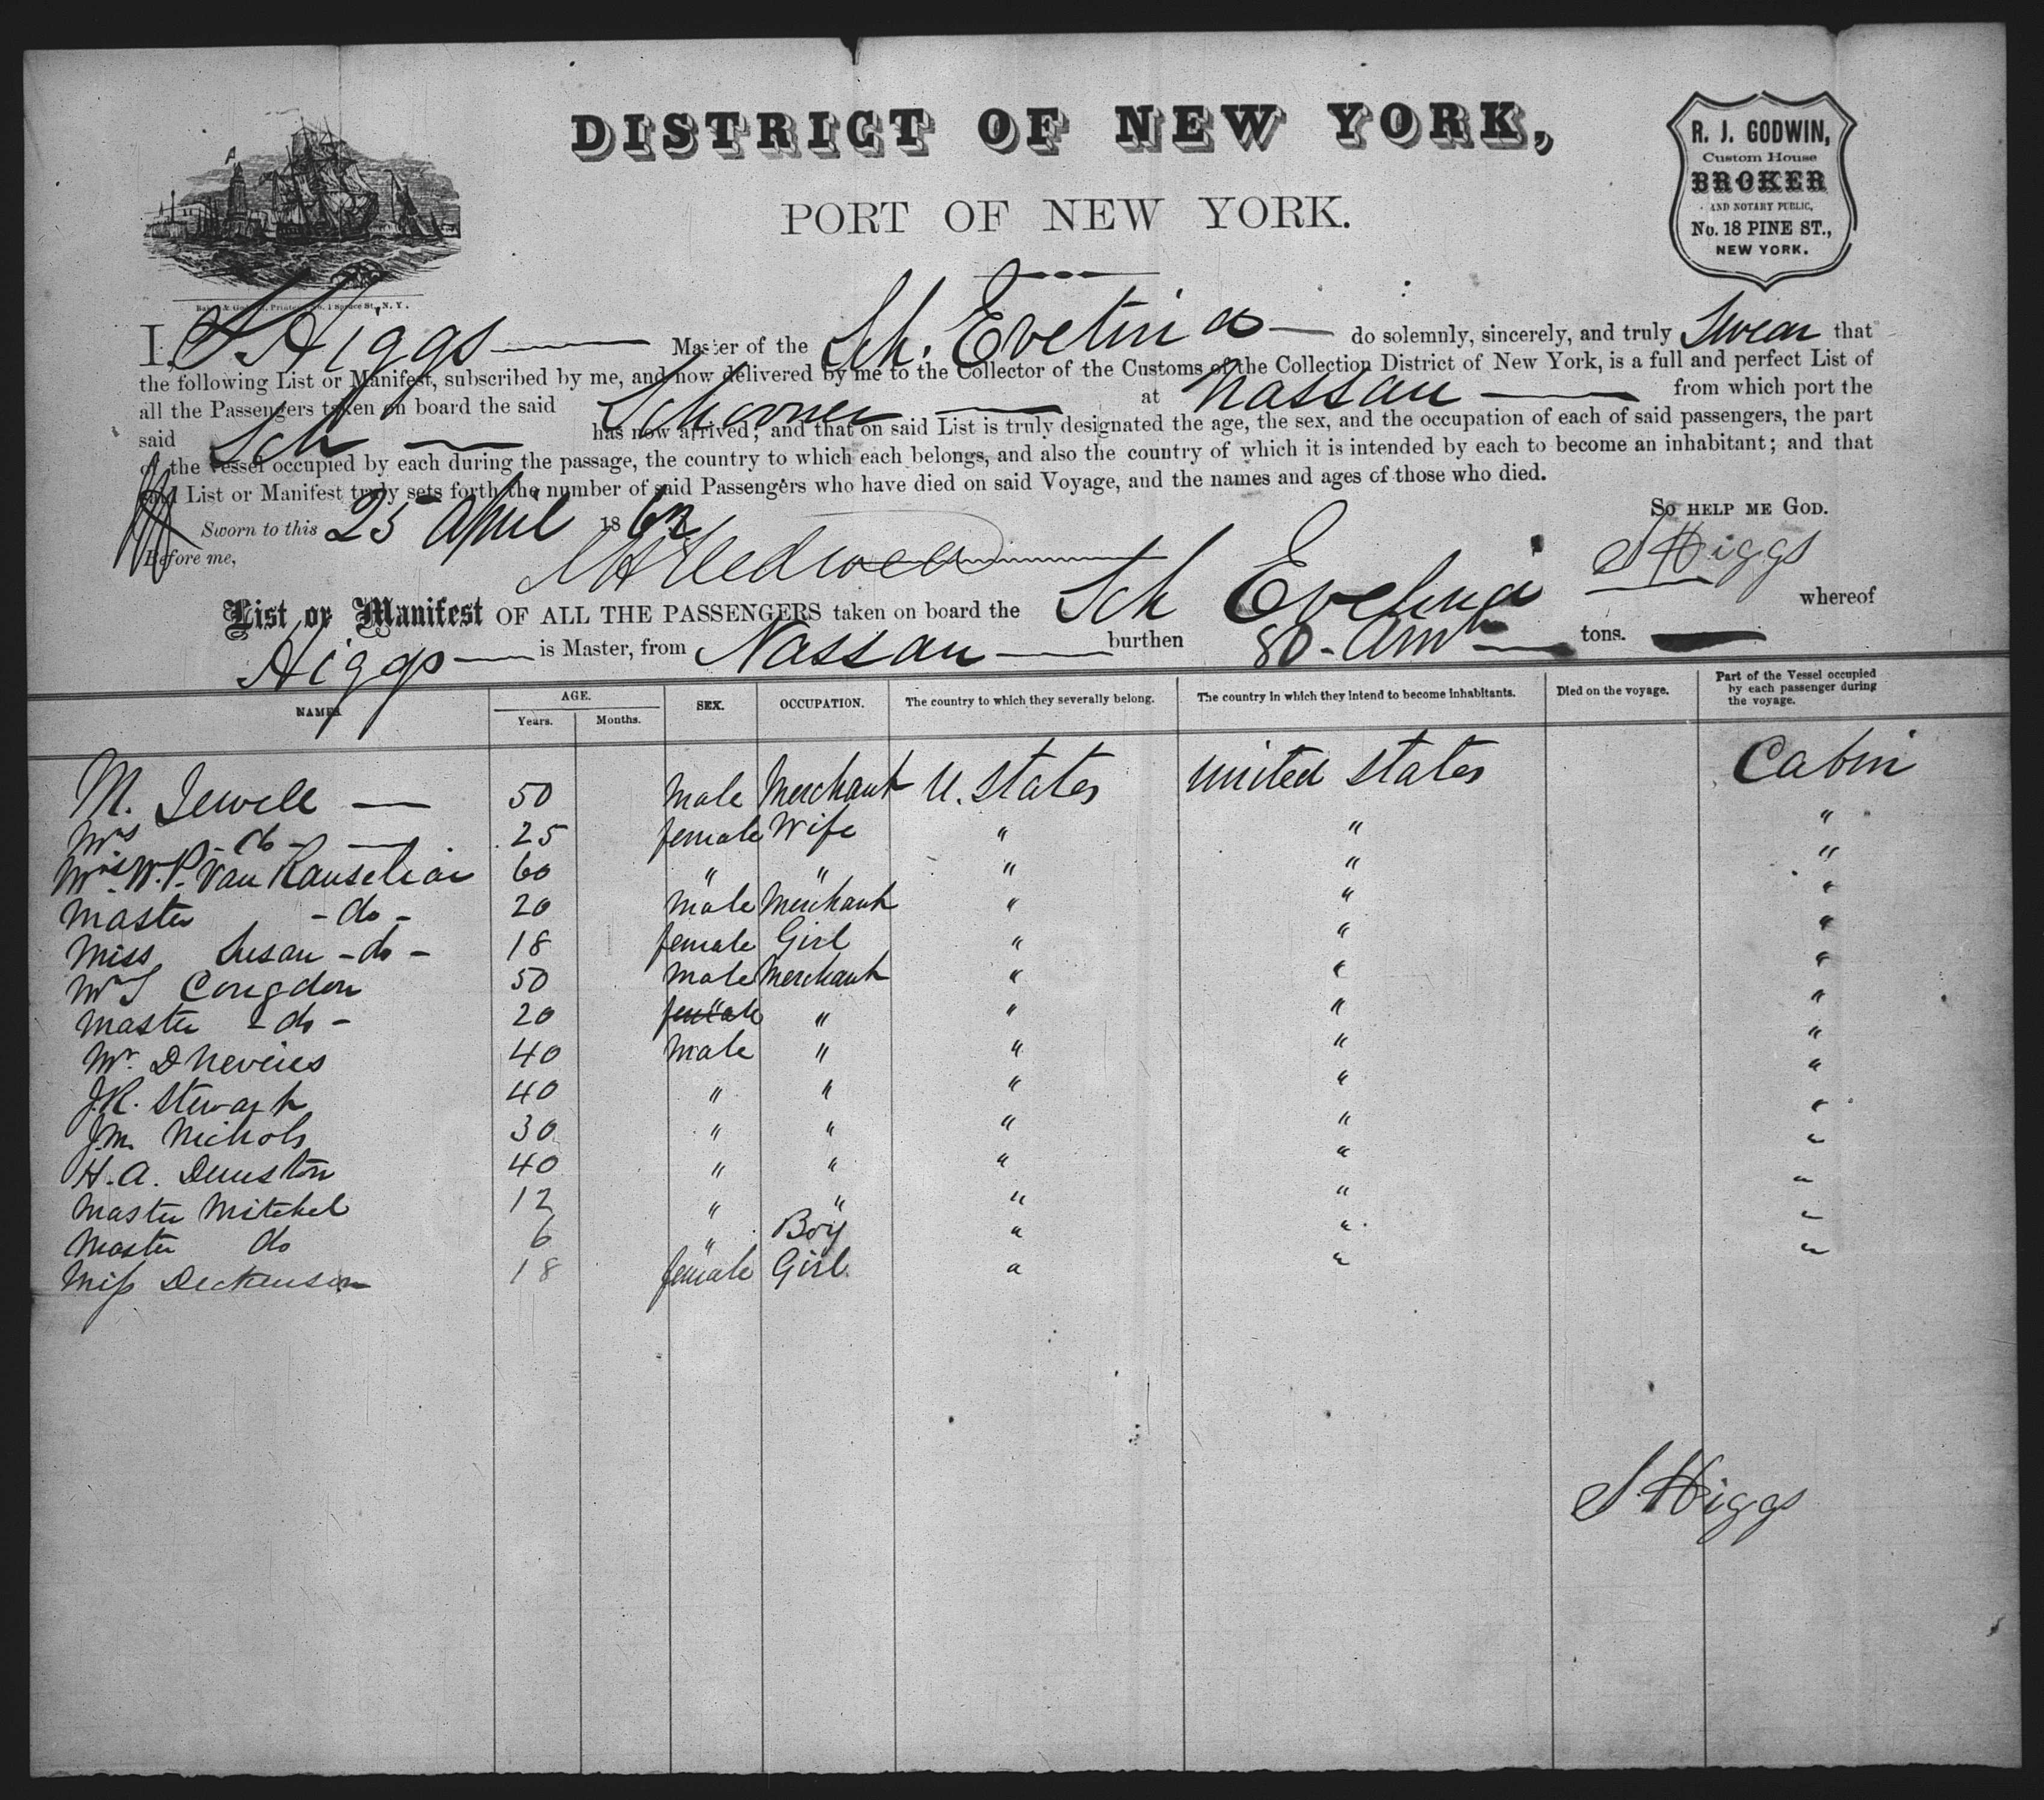 DISTRICT OF NEW YORK,
PORT OF NEW YORK.
R. J. GODWIN,
Custom House
BROKER
AND NOTARY PUBLIC,
No. 18 PINE ST.,
NEW YORK.
I, S Higgs Master of the Sch. Evelina do solemnly, sincerely, and truly Swear that
the following List or Manifest, subscribed by me, and now delivered by me to the Collector of the Customs of the Collection District of New York, is a full and perfect List of
all the Passengers taken on board the said Schooner at Nassau from which port the
said Sch has now arrived; and that on said List is truly designated the age, the sex, and the occupation of each of said passengers, the part
of the vessel occupied by each during the passage, the country to which each belongs, and also the country of which it is intended by each to become an inhabitant; and that
said List or Manifest truly sets forth the number of said Passengers who have died on said Voyage, and the names and ages of those who died.
SO HELP ME GOD.
Sworn to this 25 April 186
Before me,
S Higgs
List or Manifest OF ALL THE PASSENGERS taken on board the Sch Evelina whereof
Higgs is Master, from Nassau burthen 80 tons.
NAMES AGE. Years. Months. SEX. OCCUPATION. The country to which they severally belong. The country in which they intend to become inhabitants. Died on the voyage. Part of the Vessel occupied by each passenger during the voyage.
M. Jewell 50 Male Merchant U. States United States Cabin
Mrs -do- 25 female Wife " " "
Mrs W. P. Van Ranselear 60 " " " " "
Master -do- 20 Male Merchant " " "
Miss Susan -do- 18 female Girl " " "
Mr S Congdon 50 Male Merchant " " "
Master -do- 20 female " " " "
Mr. D Nevius 40 Male " " " "
J.R. Stewart 40 " " " " "
J.M. Nichols 30 " " " " "
H. A. 40 " " " " "
Master Mitchel 12 " " " " "
Master do 6 " Boy " " "
Miss Deckenson 18 female Girl " " "
S Higgs